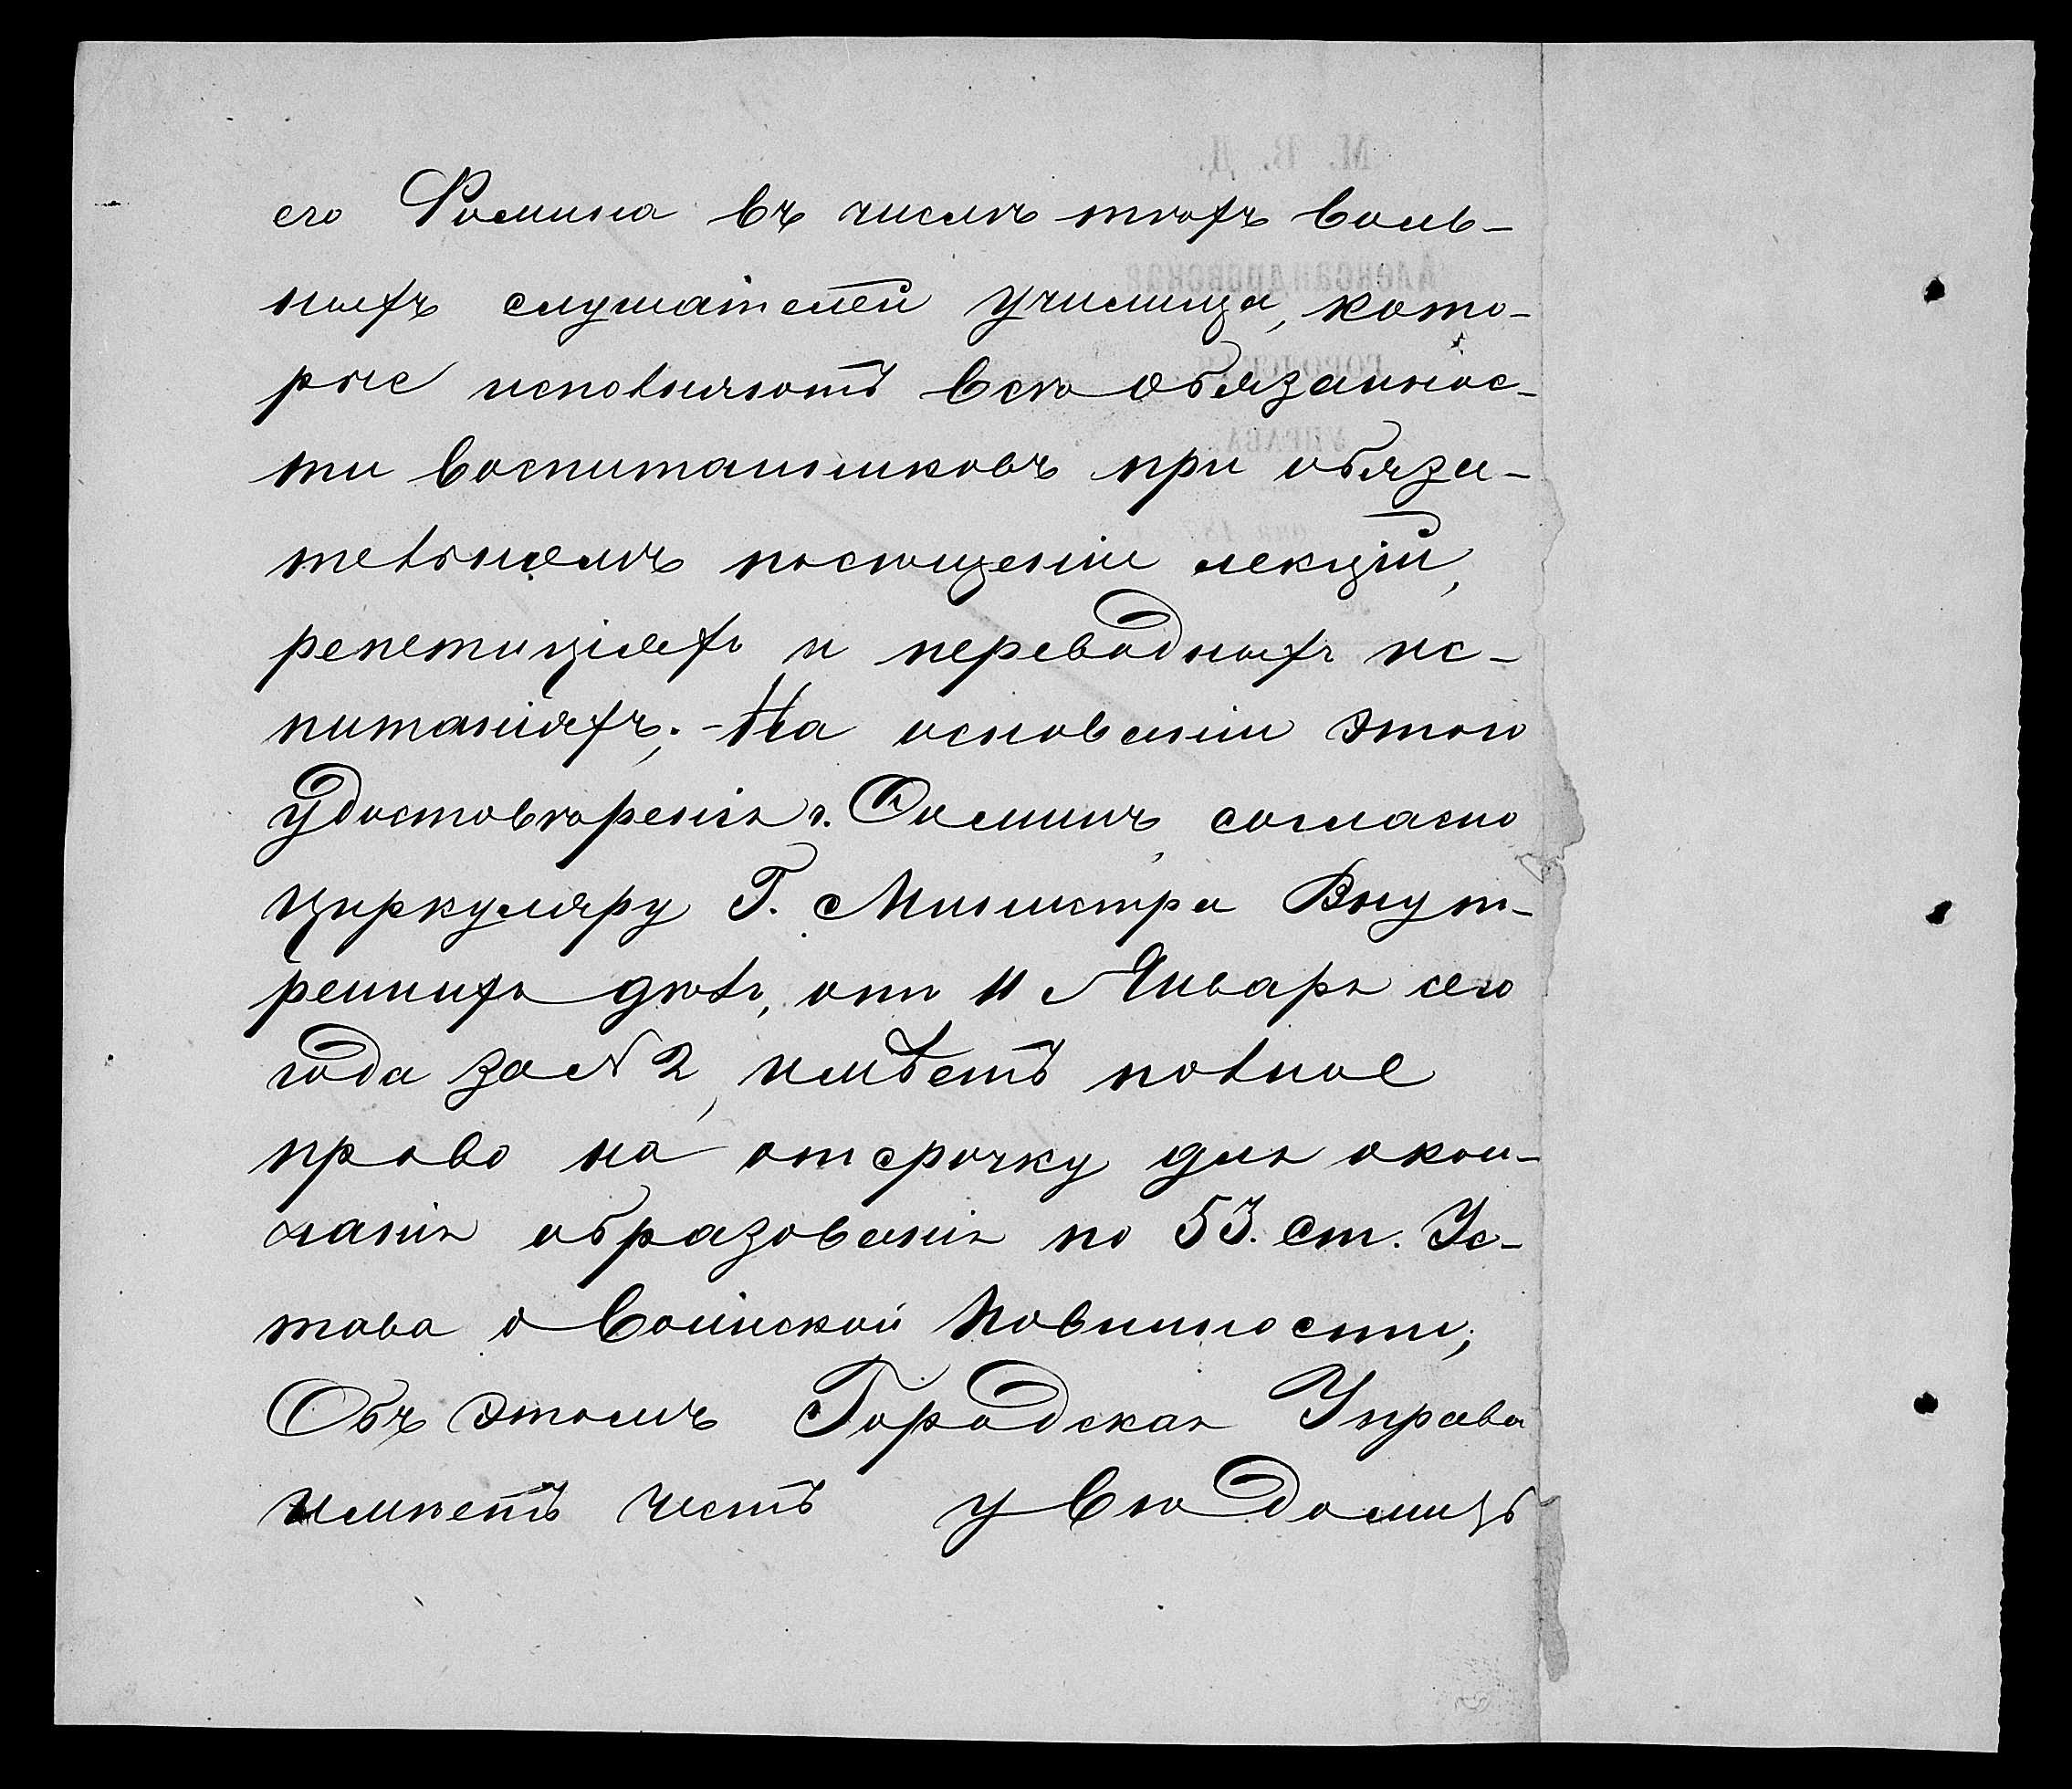 его Фомина въ числѣ тѣхъ воль-
ныхъ слушателей училища, кото-
рые исполняютъ всѣ обязаннос-
ти воспитанниковъ при обяза-
тельномъ посѣщеніи лекцій,
репетиціяхъ и переводныхъ ис-
питаніяхъ; - На основаніи этого
удостовѣренія г. Фоминъ, согласно
циркуляру Г. Министра Внут-
реннихъ дѣлъ, отъ 11 Января сего
года за № 2, имѣетъ полное
право на отсрочку для окон-
чанія образованія по 53. ст. Ус-
тава о Воинской повинности;
Объ этомъ Городская Управа
имѣетъ честь увѣдомить
М. В. Д.
Александровская
ГОРОДСКАЯ
УПРАВА